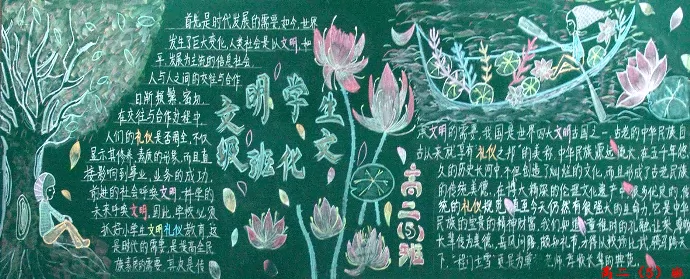 首先是时代发展的需要。如今,世界
发生了巨大变化,人类社会是以文明、和
平、发展为主流的信息社会。
人与人之间的交往与合作
日渐频繁、密切,
在交往与合作过程中,
人们的礼仪是否周全,不仅
显示其修养、素质的形象,而且直
接影响到事业、业务的成功。
前进的社会呼唤文明,科学的
未来呼唤文明,因此,学校必须
抓好小学生文明礼仪教育,这
是时代的需要,是提高全民
族素质的需要。其次是传
文明学生
文级班化
高二(5)班
承文明的需要,我国是世界四大文明古国之一,古老的中华民族自
古以来就享有“礼仪之邦”的美称,中华民族源远流长,在五千年悠
久的历史长河中,不但创造了灿烂的文化,而且形成了古老民族
的传统美德。在博大精深的伦理文化遗产中,很多优民的传
统的礼仪规范直至今天仍然有很强大的生命力,它是中华
民族的宝贵的精神财富,我们仰
高二(5)班